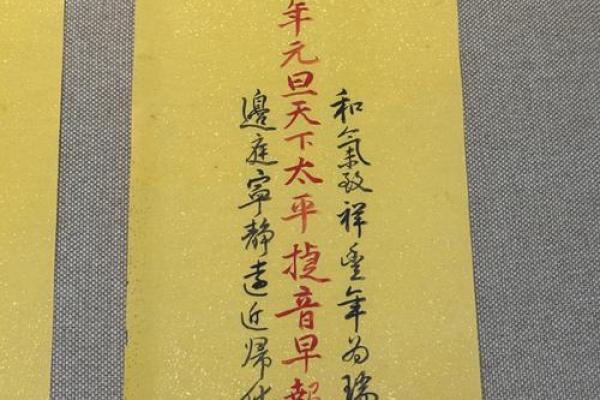 和氣致祥豐年为瑞
年元旦天下太平捷音早報
邊庭寧靜遠近歸